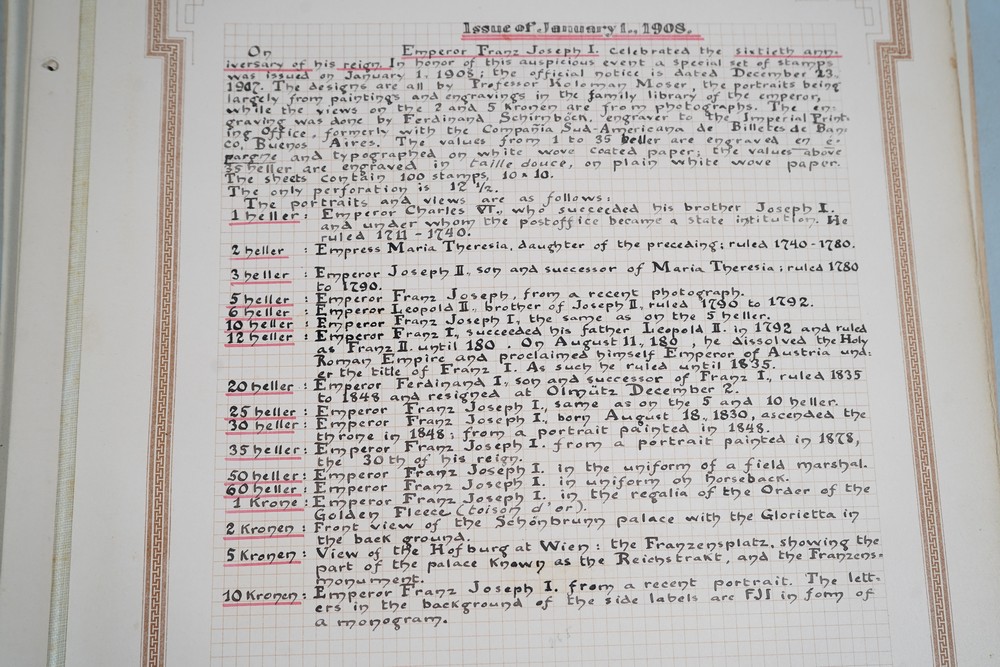 Issue of January 1., 1908.
On Emperor Franz Joseph I. celebrated the sixtieth ann-
iversary of his reign. In honor of this auspicious event a special set of stamps
was issued on January 1. 1908; the official notice is dated December 23.,
1907. The designs are all by Professor Koloman Moser, the portraits being
largely from paintings and engravings in the family library of the emperor,
while the views on the 2 and 5 Kronen are from photographs. The en-
graving was done by Ferdinand Schirnböck, engraver to the Imperial Print-
ing Office, formerly with the Compañia Sud-Americana de Billetes de Ban-
co, Buenos Aires. The values from 1 to 35 heller are engraved en e-
pargne and typographed on white wove coated paper, the values above
35 heller are engraved in taille douce, on plain white wove paper.
The sheets contain 100 stamps, 10 x 10.
The only perforation is 12 1/2.
The portraits and views are as follows:
1 heller : Emperor Charles VI., who succeeded his brother Joseph I.
and under whom the postoffice became a state intitution. He
ruled 1711 - 1740.
2 heller : Empress Maria Theresia, daughter of the preceding; ruled 1740 - 1780.
3 heller : Emperor Joseph II., son and successor of Maria Theresia; ruled 1780
to 1790.
5 heller : Emperor Franz Joseph, from a recent photograph.
6 heller : Emperor Leopold II., brother of Joseph II., ruled 1790 to 1792.
10 heller : Emperor Franz Joseph I., the same as on the 5 heller.
12 heller : Emperor Franz I., succeeded his father, Leopold II. in 1792 and ruled
as Franz II. until 180 . On August 11., 180 , he dissolved the Holy
Roman Empire and proclaimed himself Emperor of Austria und-
er the title of Franz I. As such he ruled until 1835.
20 heller : Emperor Ferdinand I., son and successor of Franz I., ruled 1835
to 1848 and resigned at Olmütz December 2.
25 heller : Emperor Franz Joseph I., same as on the 5 and 10 heller.
30 heller : Emperor Franz Joseph I., born August 18., 1830, ascended the
throne in 1848; from a portrait painted in 1848.
35 heller : Emperor Franz Joseph I. from a portrait painted in 1878,
the 30th of his reign.
50 heller : Emperor Franz Joseph I. in the uniform of a field marshal.
60 heller : Emperor Franz Joseph I. in uniform on horseback.
1 Krone : Emperor Franz Joseph I., in the regalia of the Order of the
Golden Fleece (toison d'or).
2 Kronen : Front view of the Schönbrunn palace with the Glorietta in
the back ground.
5 Kronen : View of the Hofburg at Wien : the Franzensplatz, showing the
part of the palace known as the Reichstrakt, and the Franzens-
monument.
10 Kronen : Emperor Franz Joseph I. from a recent portrait. The lett-
ers in the background of the side labels are FJI in form of
a monogram.